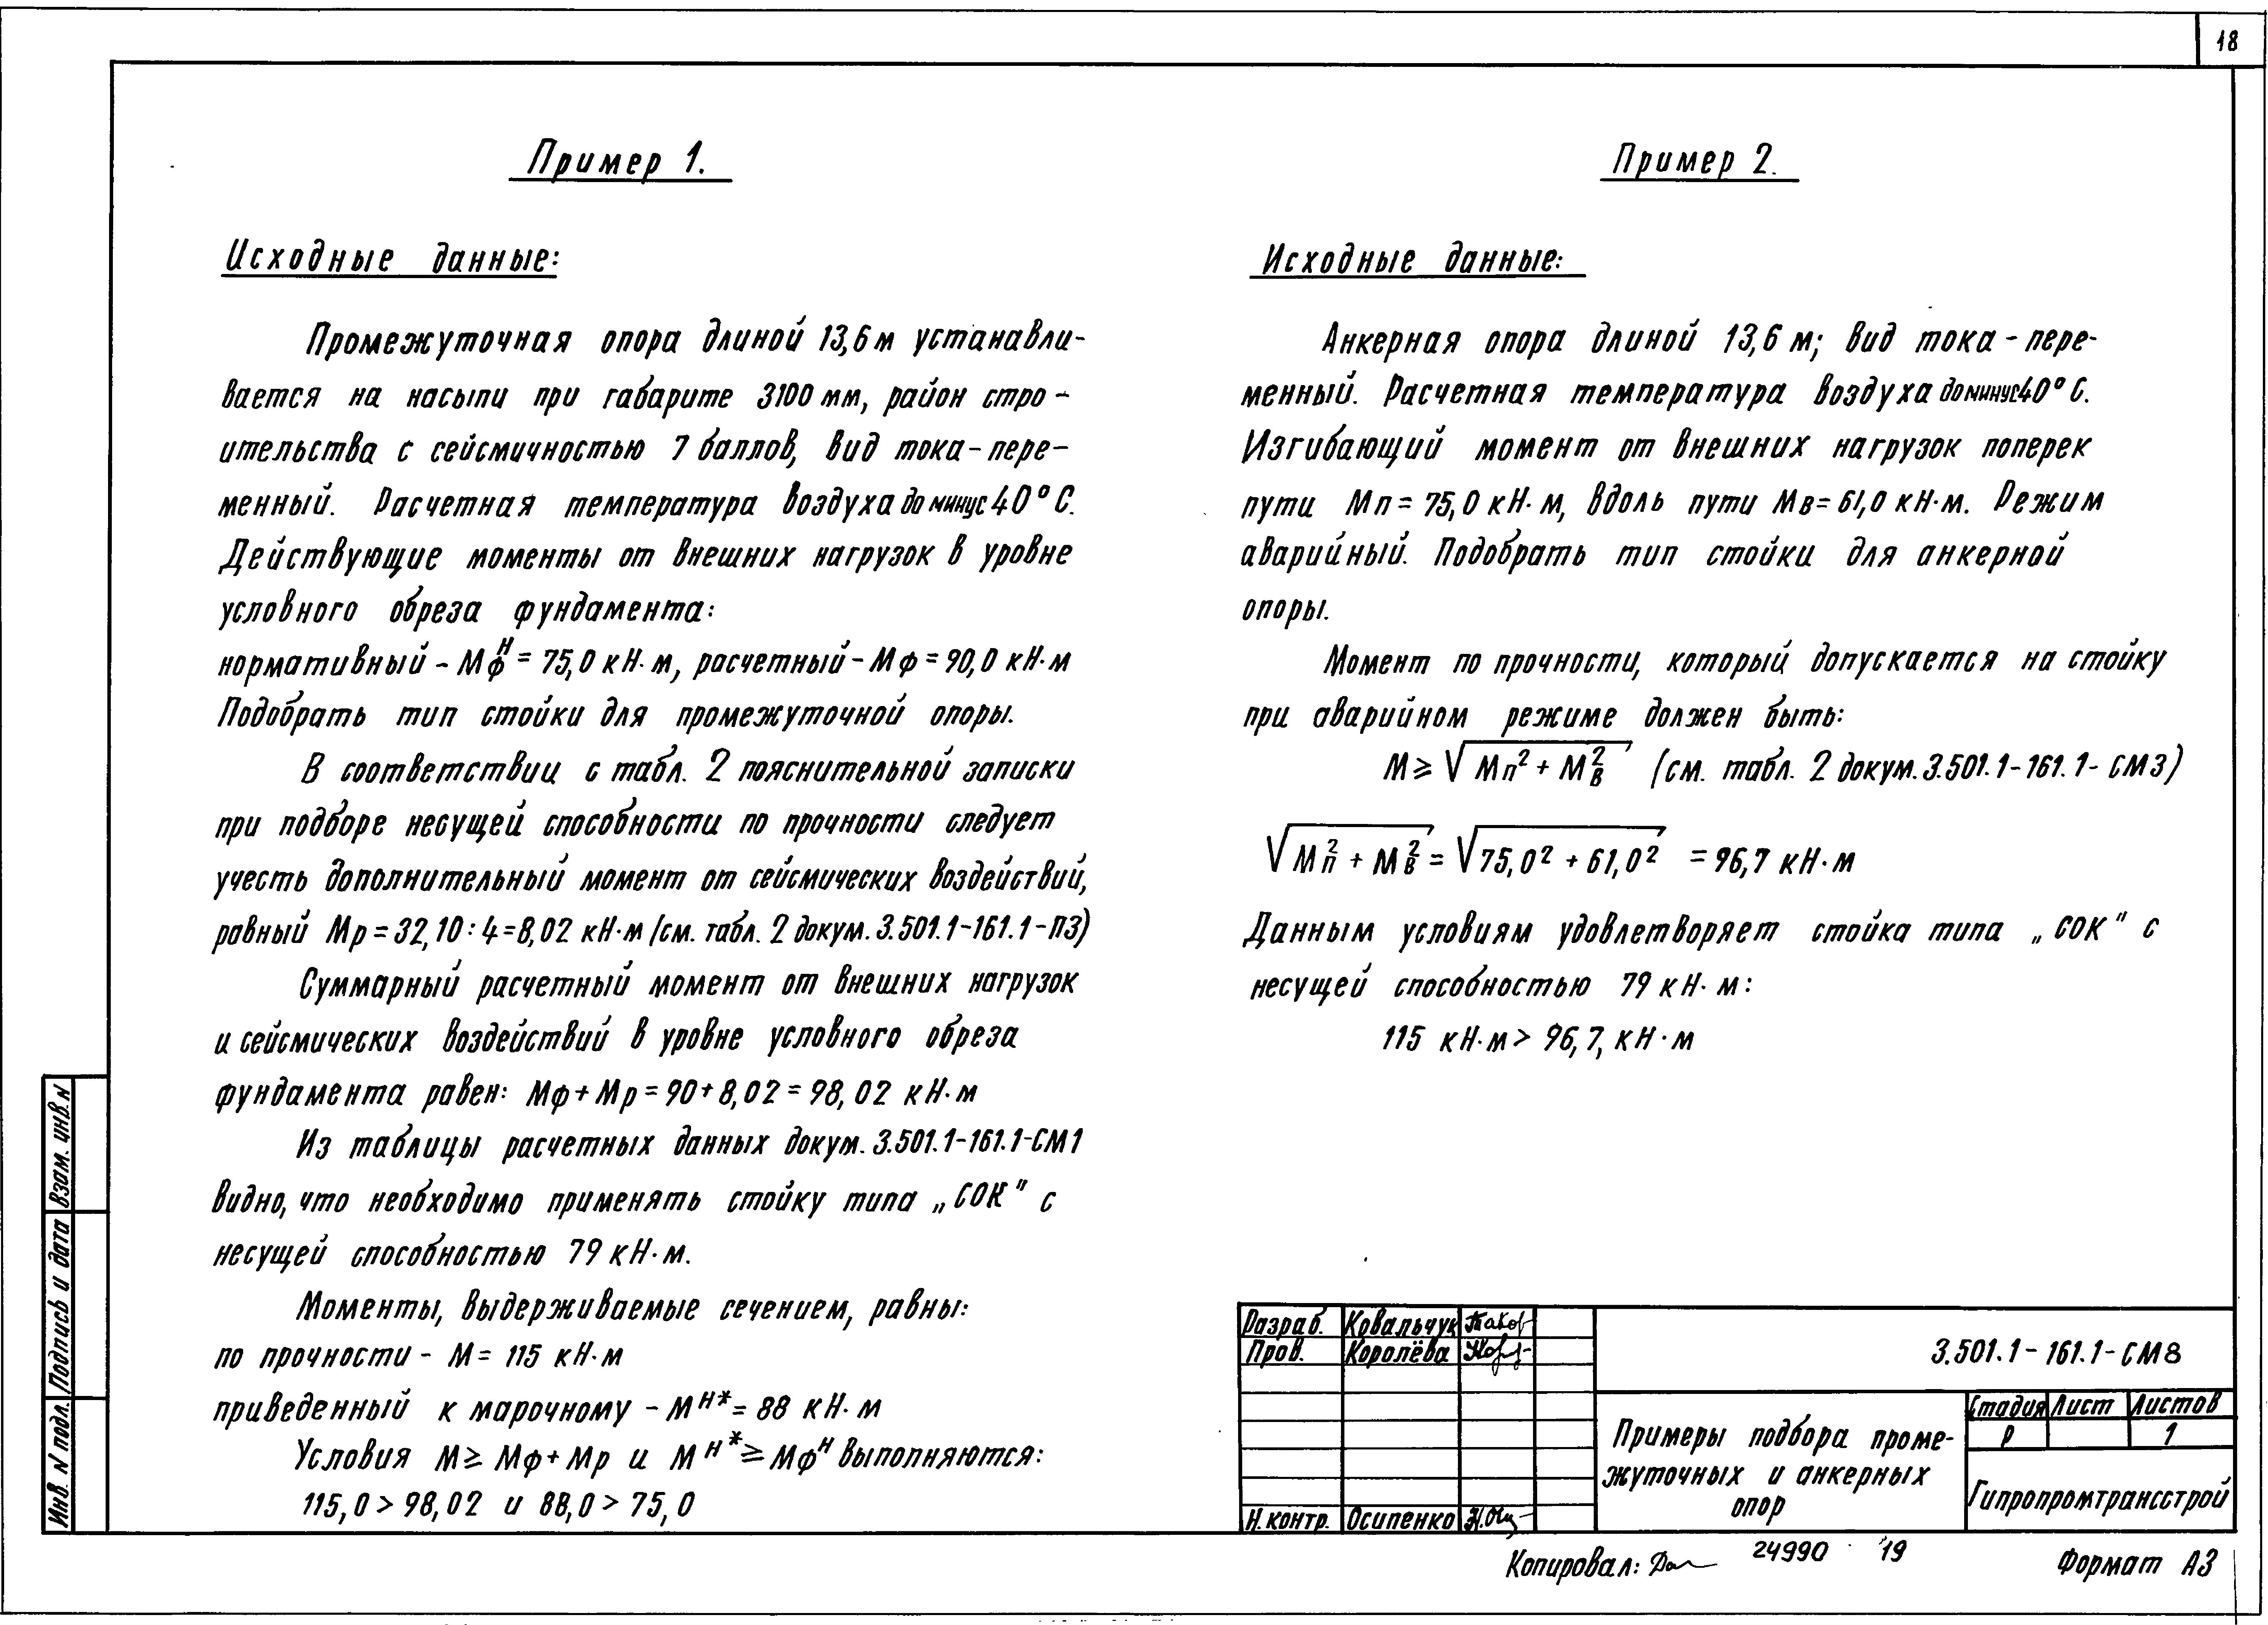 18
Пример 1.
Исходные данные:
Промежуточная опора длиной 13,6 м устанавли-
вается на насыпи при габарите 3100 мм, район стро-
ительства с сейсмичностью 7 баллов, вид тока - пере-
менный. Расчетная температура воздуха до минус 40° С.
Действующие моменты от внешних нагрузок в уровне
условного обреза фундамента:
нормативный - Мф^н = 75,0 кН·м, расчетный - Мф = 90,0 кН·м
Подобрать тип стойки для промежуточной опоры.
В соответствии с табл. 2 пояснительной записки
при подборе несущей способности по прочности следует
учесть дополнительный момент от сейсмических воздействий,
равный Мр = 32,10 : 4 = 8,02 кН·м (см. табл. 2 докум. 3.501.1-161.1-ПЗ)
Суммарный расчетный момент от внешних нагрузок
и сейсмических воздействий в уровне условного обреза
фундамента равен: Мф + Мр = 90 + 8,02 = 98,02 кН·м
Из таблицы расчетных данных докум. 3.501.1-161.1-СМ1
видно, что необходимо применять стойку типа „СОК" с
несущей способностью 79 кН·м.
Моменты, выдерживаемые сечением, равны:
по прочности - М = 115 кН·м
приведенный к марочному - М^н* = 88 кН·м
Условия М ≥ Мф + Мр и М^н* ≥ Мф^н выполняются:
115,0 > 98,02 и 88,0 > 75,0
Пример 2.
Исходные данные:
Анкерная опора длиной 13,6 м; вид тока - пере-
менный. Расчетная температура воздуха до минус 40° С.
Изгибающий момент от внешних нагрузок поперек
пути Мп = 75,0 кН·м, вдоль пути Мв = 61,0 кН·м. Режим
аварийный. Подобрать тип стойки для анкерной
опоры.
Момент по прочности, который допускается на стойку
при аварийном режиме должен быть:
М ≥ √(Мп² + Мв²) (см. табл. 2 докум. 3.501.1-161.1-СМ3)
√(Мп² + Мв²) = √(75,0² + 61,0²) = 96,7 кН·м
Данным условиям удовлетворяет стойка типа „СОК" с
несущей способностью 79 кН·м:
115 кН·м > 96,7, кН·м
Инв. N подл. Подпись и дата Взам. инв. N
Разраб. Ковальчук
Пров. Королёва
Н. контр. Осипенко
3.501.1-161.1-СМ8
Примеры подбора проме-
жуточных и анкерных
опор
Стадия Лист Листов
Р 1
Гипропромтрансстрой
Копировал: 24990 19 Формат А3